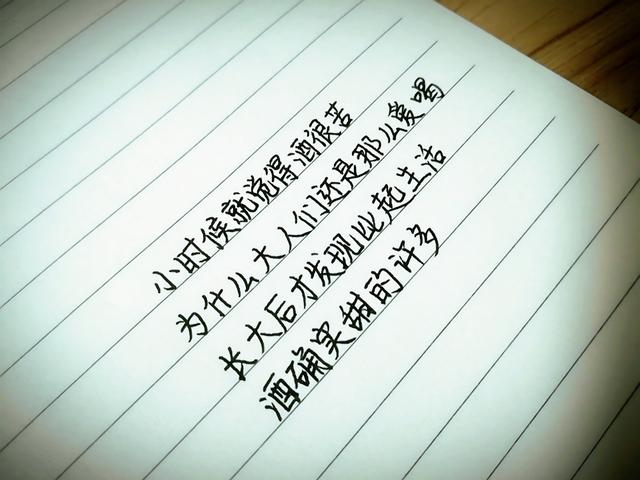 小时候就觉得酒很苦
为什么大人们还是那么爱喝
长大后才发现比起生活
酒确实甜的许多